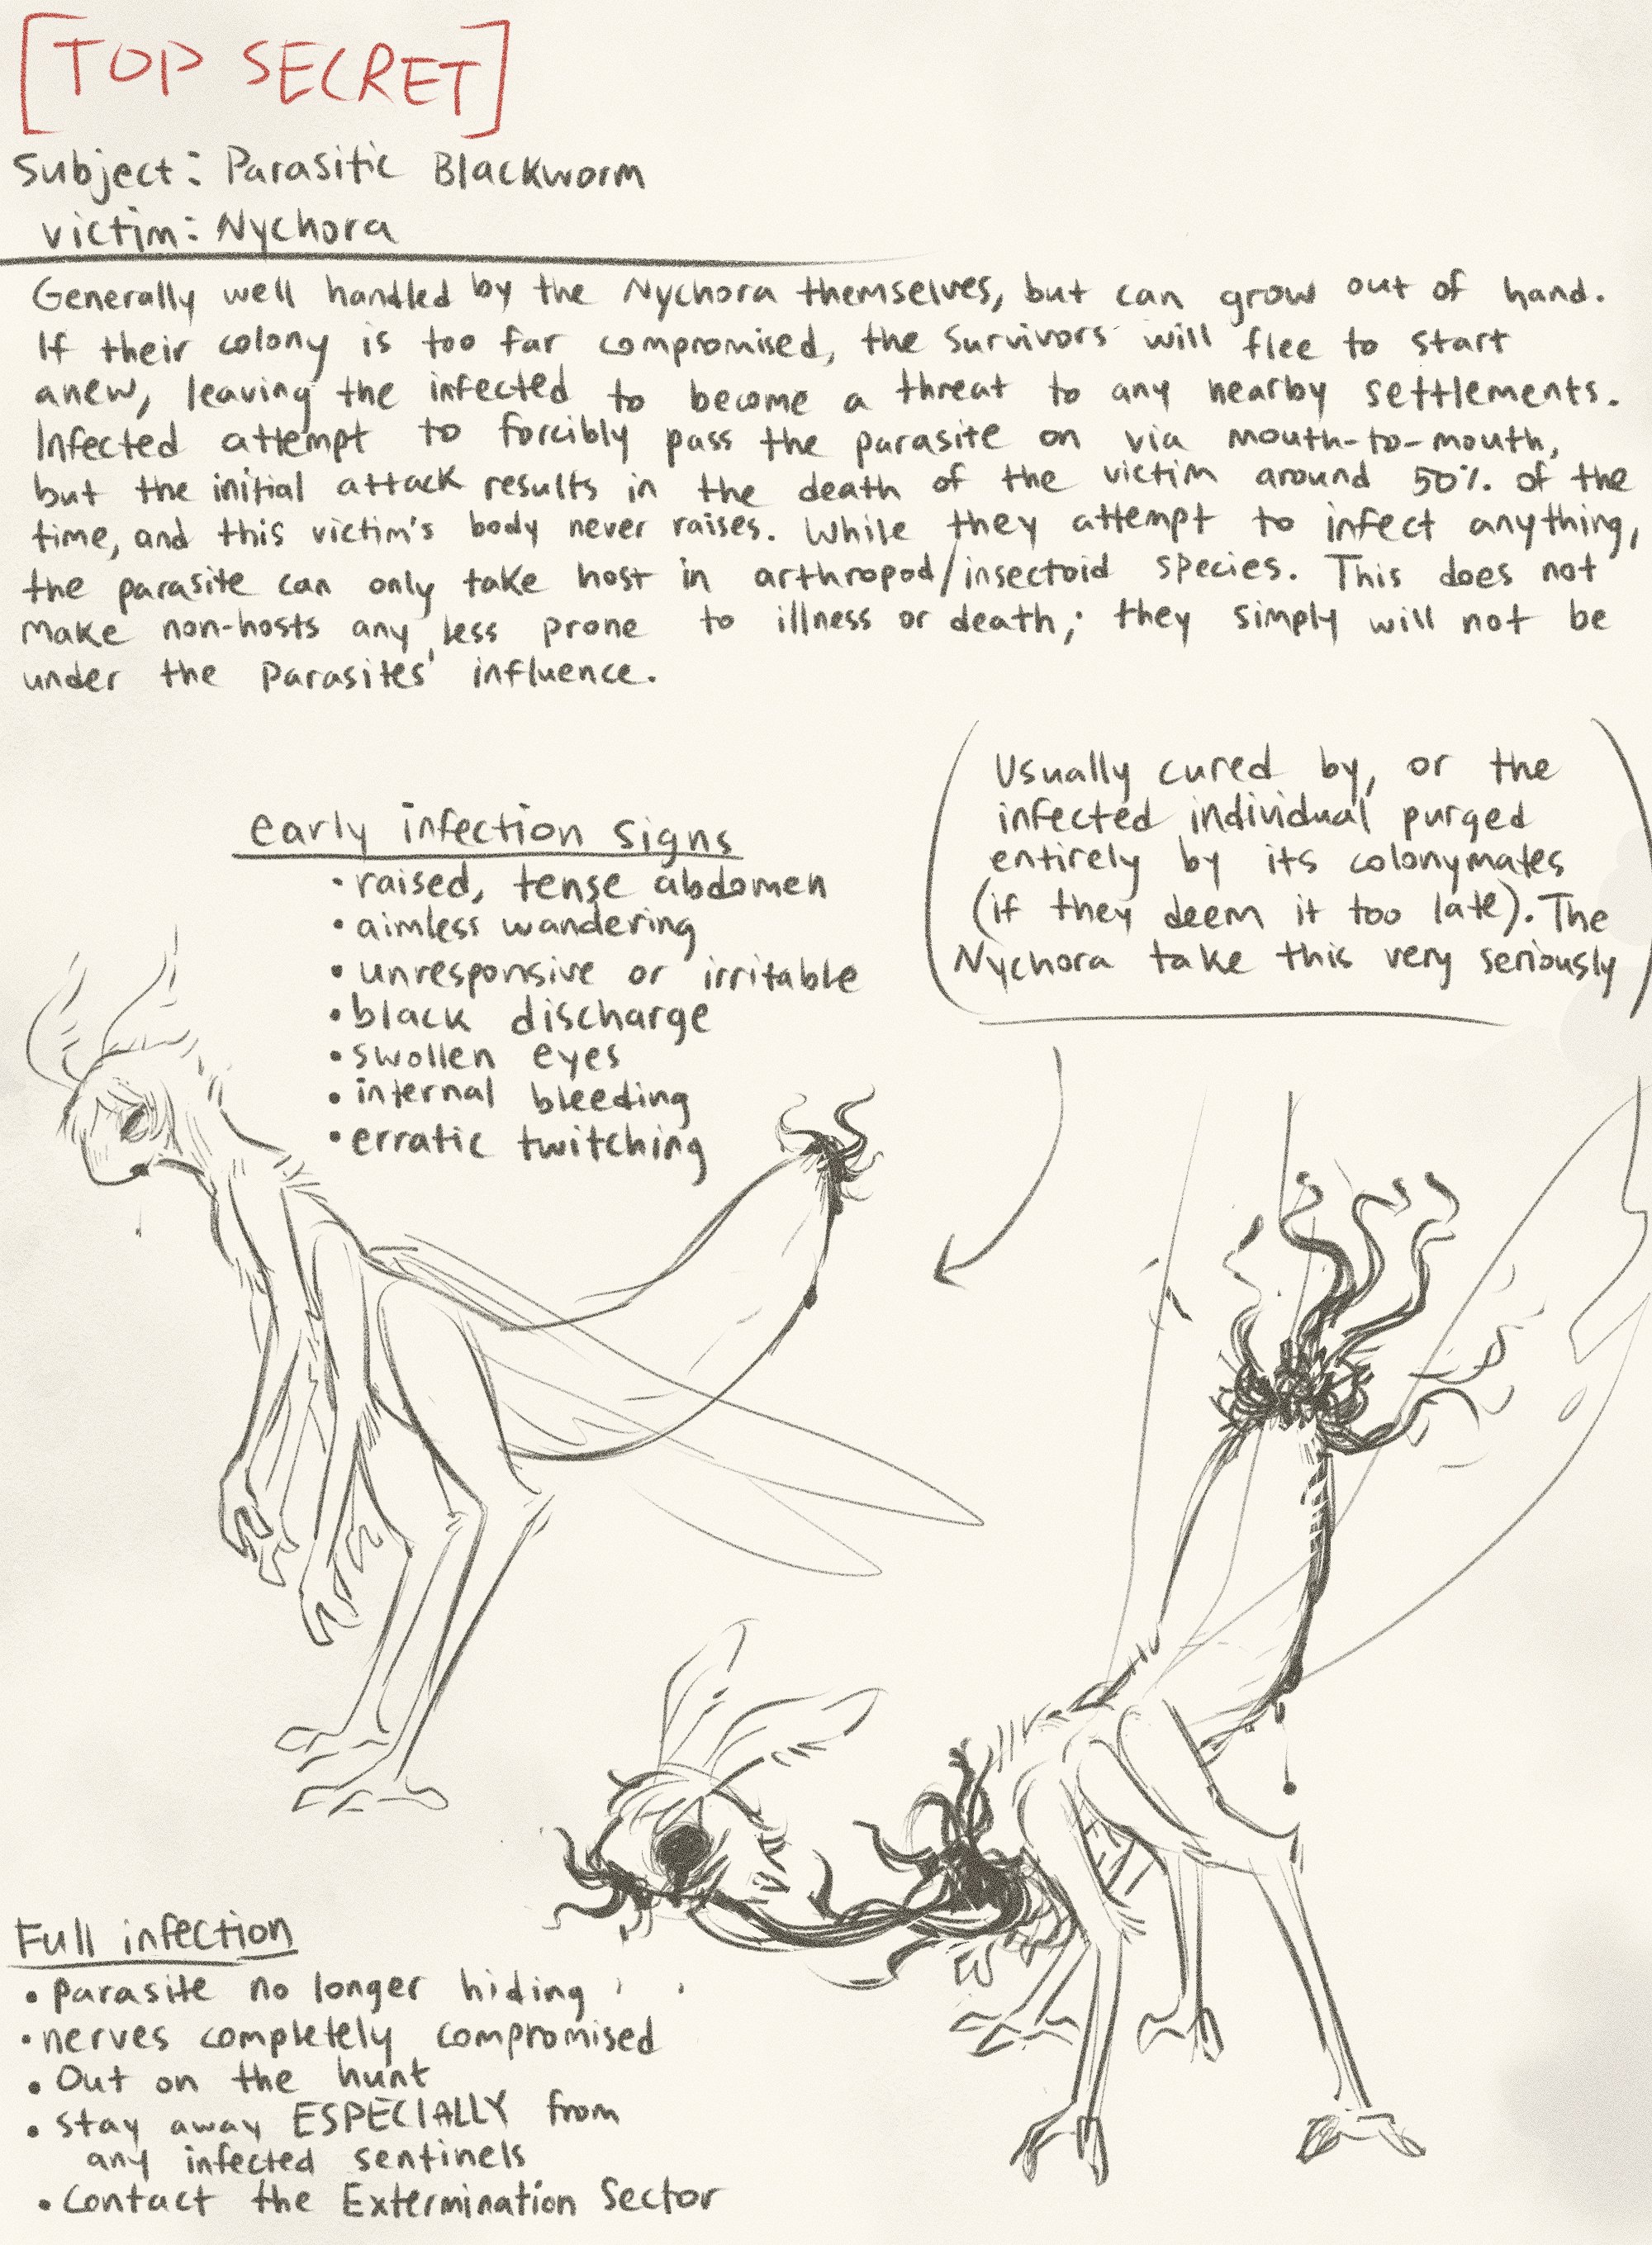 [TOP SECRET]
Subject: Parasitic Blackworm
victim: Nychora
Generally well handled by the Nychora themselves, but can grow out of hand.
If their colony is too far compromised, the survivors will flee to start
anew, leaving the infected to become a threat to any nearby settlements.
Infected attempt to forcibly pass the parasite on via mouth-to-mouth,
but the initial attack results in the death of the victim around 50% of the
time, and this victim's body never raises. While they attempt to infect anything,
the parasite can only take host in arthropod/insectoid species. This does not
make non-hosts any less prone to illness or death; they simply will not be
under the parasites' influence.
(Usually cured by, or the
infected individual purged
entirely by its colonymates
(if they deem it too late). The
Nychora take this very seriously)
early infection signs
• raised, tense abdomen
• aimless wandering
• unresponsive or irritable
• black discharge
• swollen eyes
• internal bleeding
• erratic twitching
Full infection
• parasite no longer hiding
• nerves completely compromised
• Out on the hunt
• stay away ESPECIALLY from
any infected sentinels
• Contact the Extermination Sector